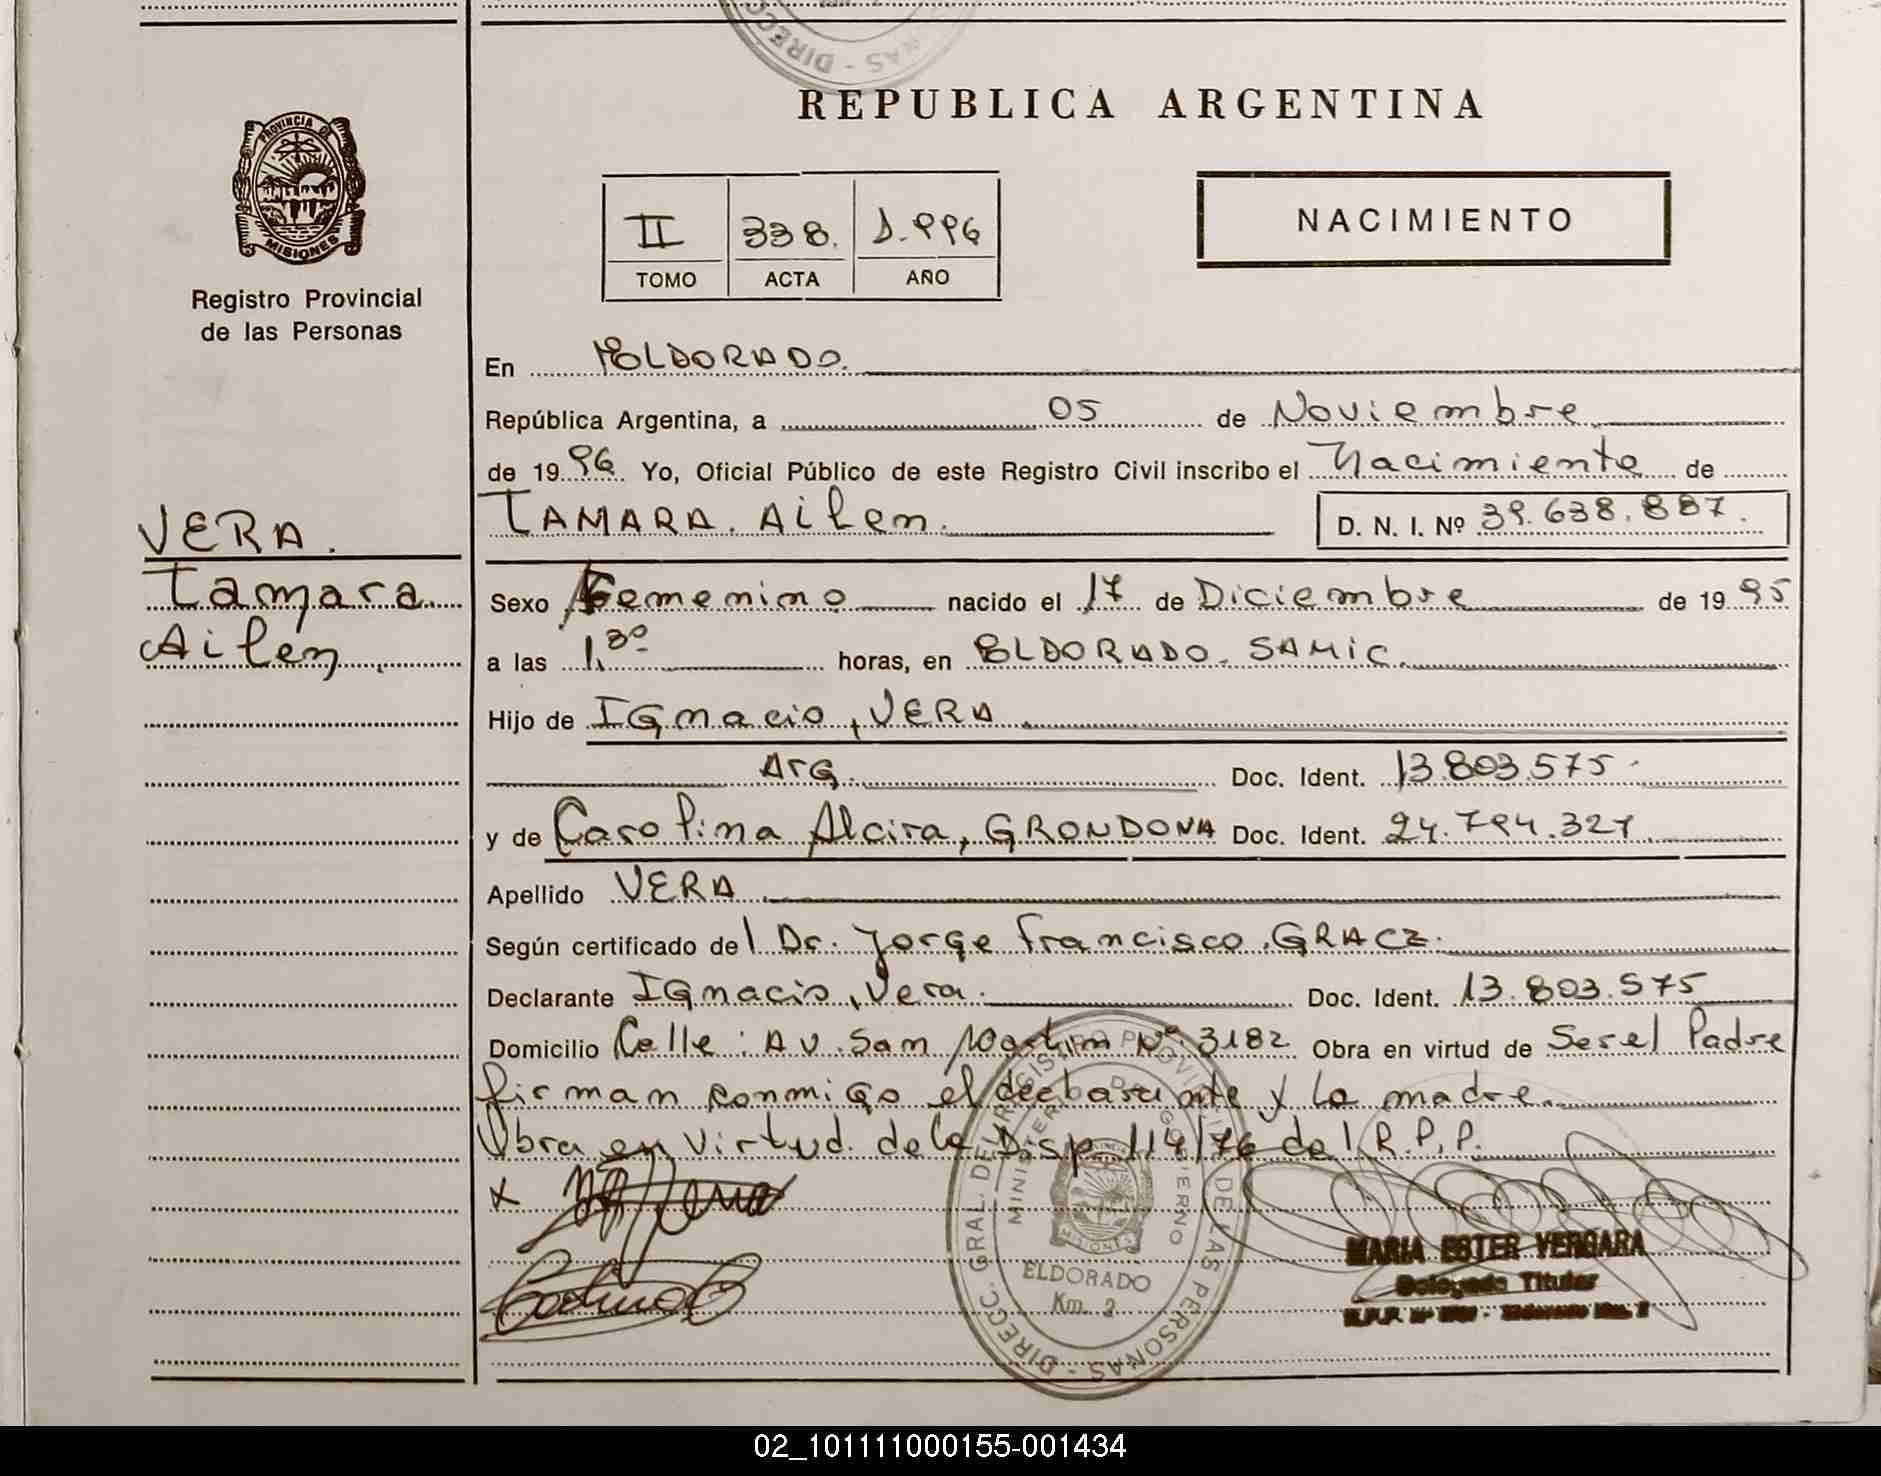 REPUBLICA ARGENTINA
PROVINCIA DE MISIONES
Registro Provincial
de las Personas
II 338. 1.996
TOMO ACTA AÑO
NACIMIENTO
En ELDORADO.
República Argentina, a 05 de Noviembre
de 19 96 Yo, Oficial Público de este Registro Civil inscribo el Nacimiento de
TAMARA. Ailen. D. N. I. Nº 39.638.887.
VERA.
Tamara
Ailen.
Sexo Femenino nacido el 17 de Diciembre de 19 95
a las 1,30 horas, en ELDORADO. SAMIC.
Hijo de IGnacio, VERA
ArG. Doc. Ident. 13.803.575.
y de Carolina Alcira, GRONDONA Doc. Ident. 24.794.327
Apellido VERA
Según certificado del Dr. Jorge Francisco. GRACZ.
Declarante IGnacio, Vera. Doc. Ident. 13.803.575
Domicilio Calle: AV. San Martin Nº 3182 Obra en virtud de Ser el Padre
firman conmigo el declarante y la madre.
Obra en virtud de la Disp 114/76 del R.P.P.
DIRECC. GRAL. DEL REGISTRO PROVINCIAL DE LAS PERSONAS
MINISTERIO DE GOBIERNO
ELDORADO
Km. 2
MARIA ESTER VERGARA
Delegada Titular
02_101111000155-001434